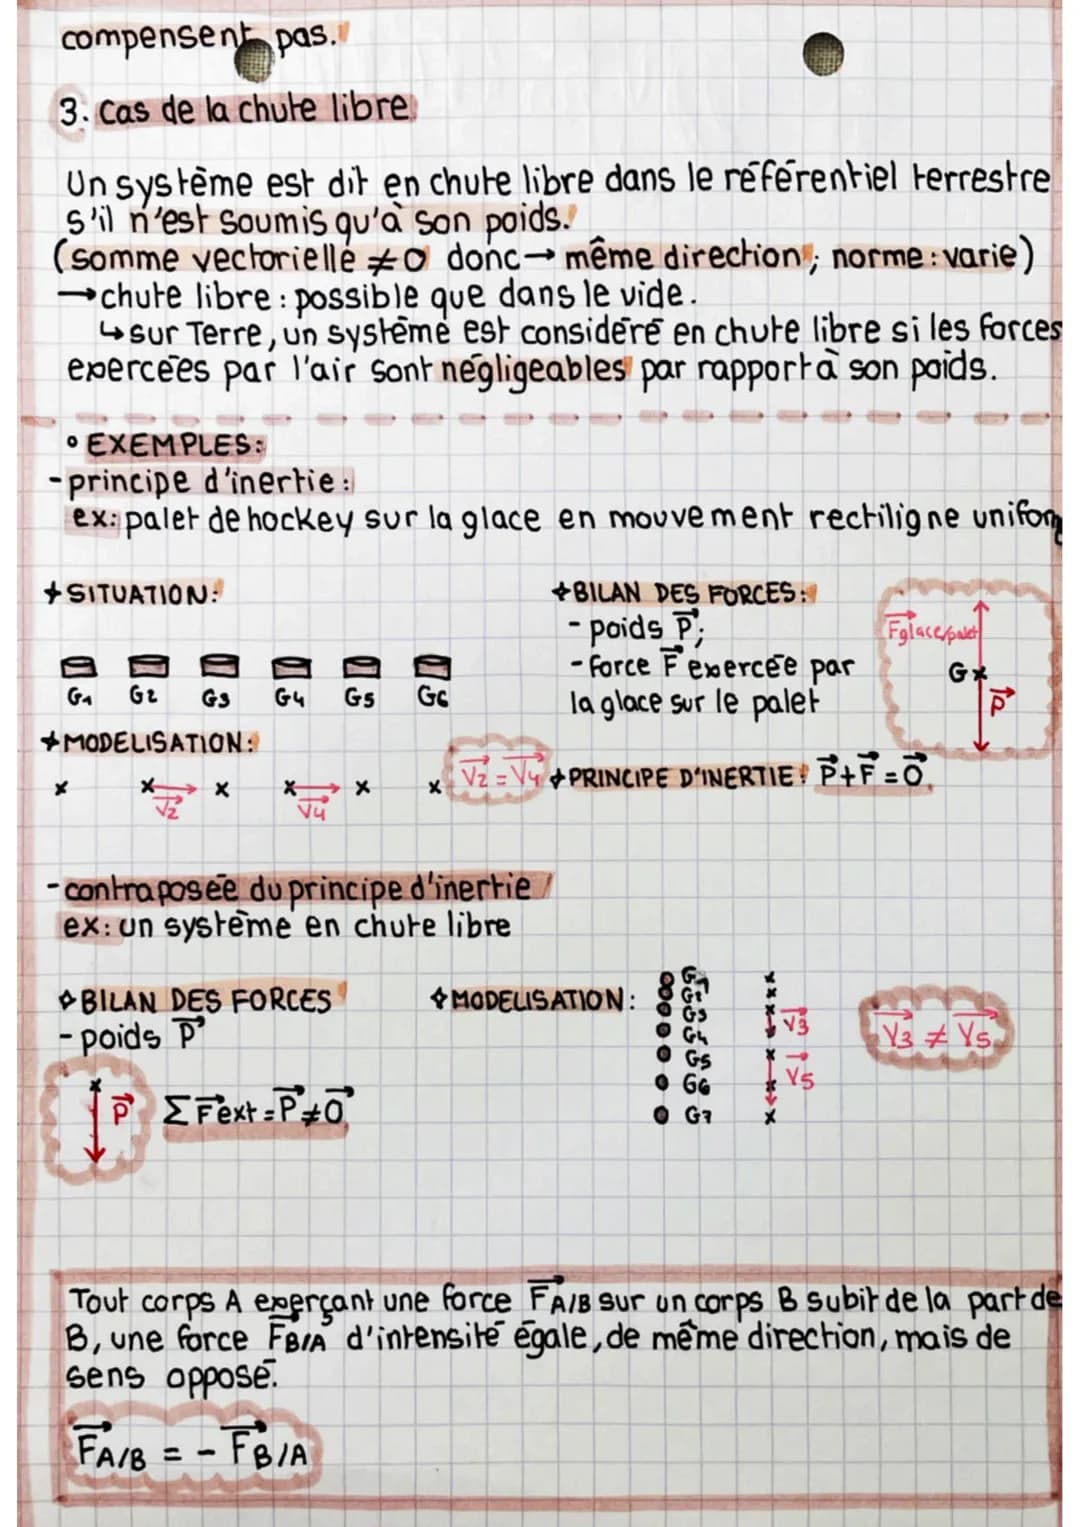 compensent pas.
3. Cas de la chute libre
Un système est dit en chute libre dans le référentiel terrestre
s'il n'est soumis qu'à son poids.
(somme vectorielle ≠0 donc→ même direction ; norme : varie)
→chute libre : possible que dans le vide.
↳sur Terre, un système est considéré en chute libre si les forces
exercées par l'air sont négligeables par rapport à son poids.
° EXEMPLES:
-principe d'inertie :
ex: palet de hockey sur la glace en mouvement rectiligne uniform
+SITUATION:
G1 G2 G3 G4 G5 G6
+BILAN DES FORCES:
- poids P⃗;
- force F⃗ exercée par
la glace sur le palet
F⃗glace/palet
G×
P⃗
+MODELISATION:
x x x x x x
V⃗2 V⃗4
V⃗2 = V⃗4
+PRINCIPE D'INERTIE: P⃗+F⃗ = 0⃗
-contraposée du principe d'inertie
ex: un système en chute libre
◇BILAN DES FORCES
- poids P⃗
P⃗
ΣF⃗ext = P⃗≠0⃗
◇MODELISATION:
G1
G2
G3
G4
G5
G6
G7
V⃗3
V⃗5
V⃗3 ≠ V⃗5
Tout corps A exerçant une force F⃗A/B sur un corps B subit de la part de
B, une force F⃗B/A d'intensité égale, de même direction, mais de
sens opposé.
F⃗A/B = - F⃗B/A